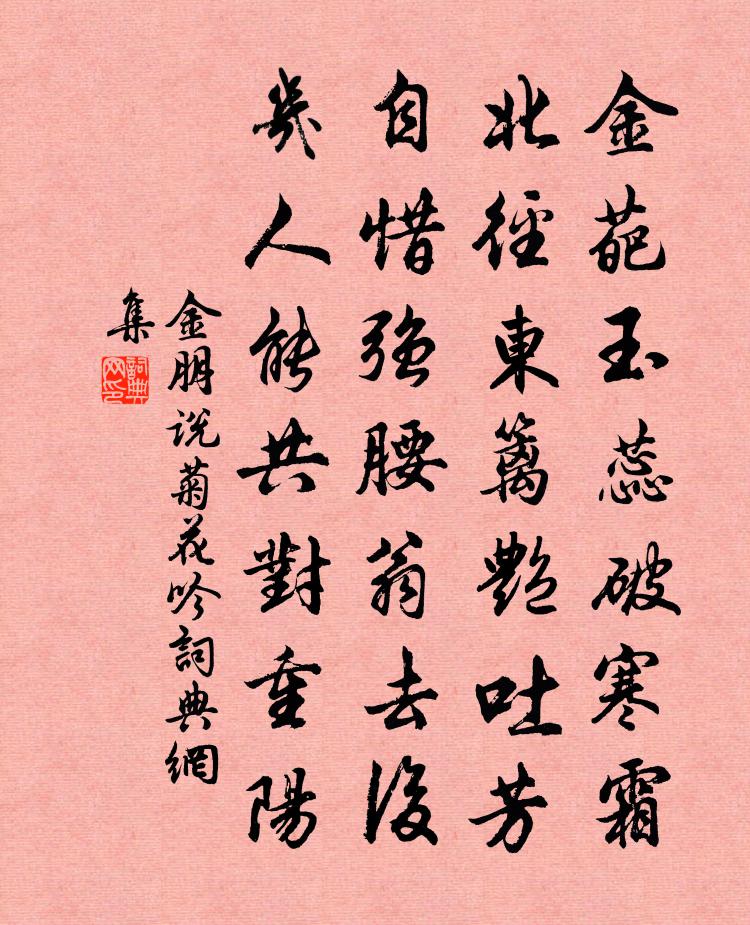 金葩玉蕊破寒霜
北徑東籬艷吐芳
自惜強腰翁去後
幾人能共對重陽
金朋說菊花吟詞典網
集
詞典網印